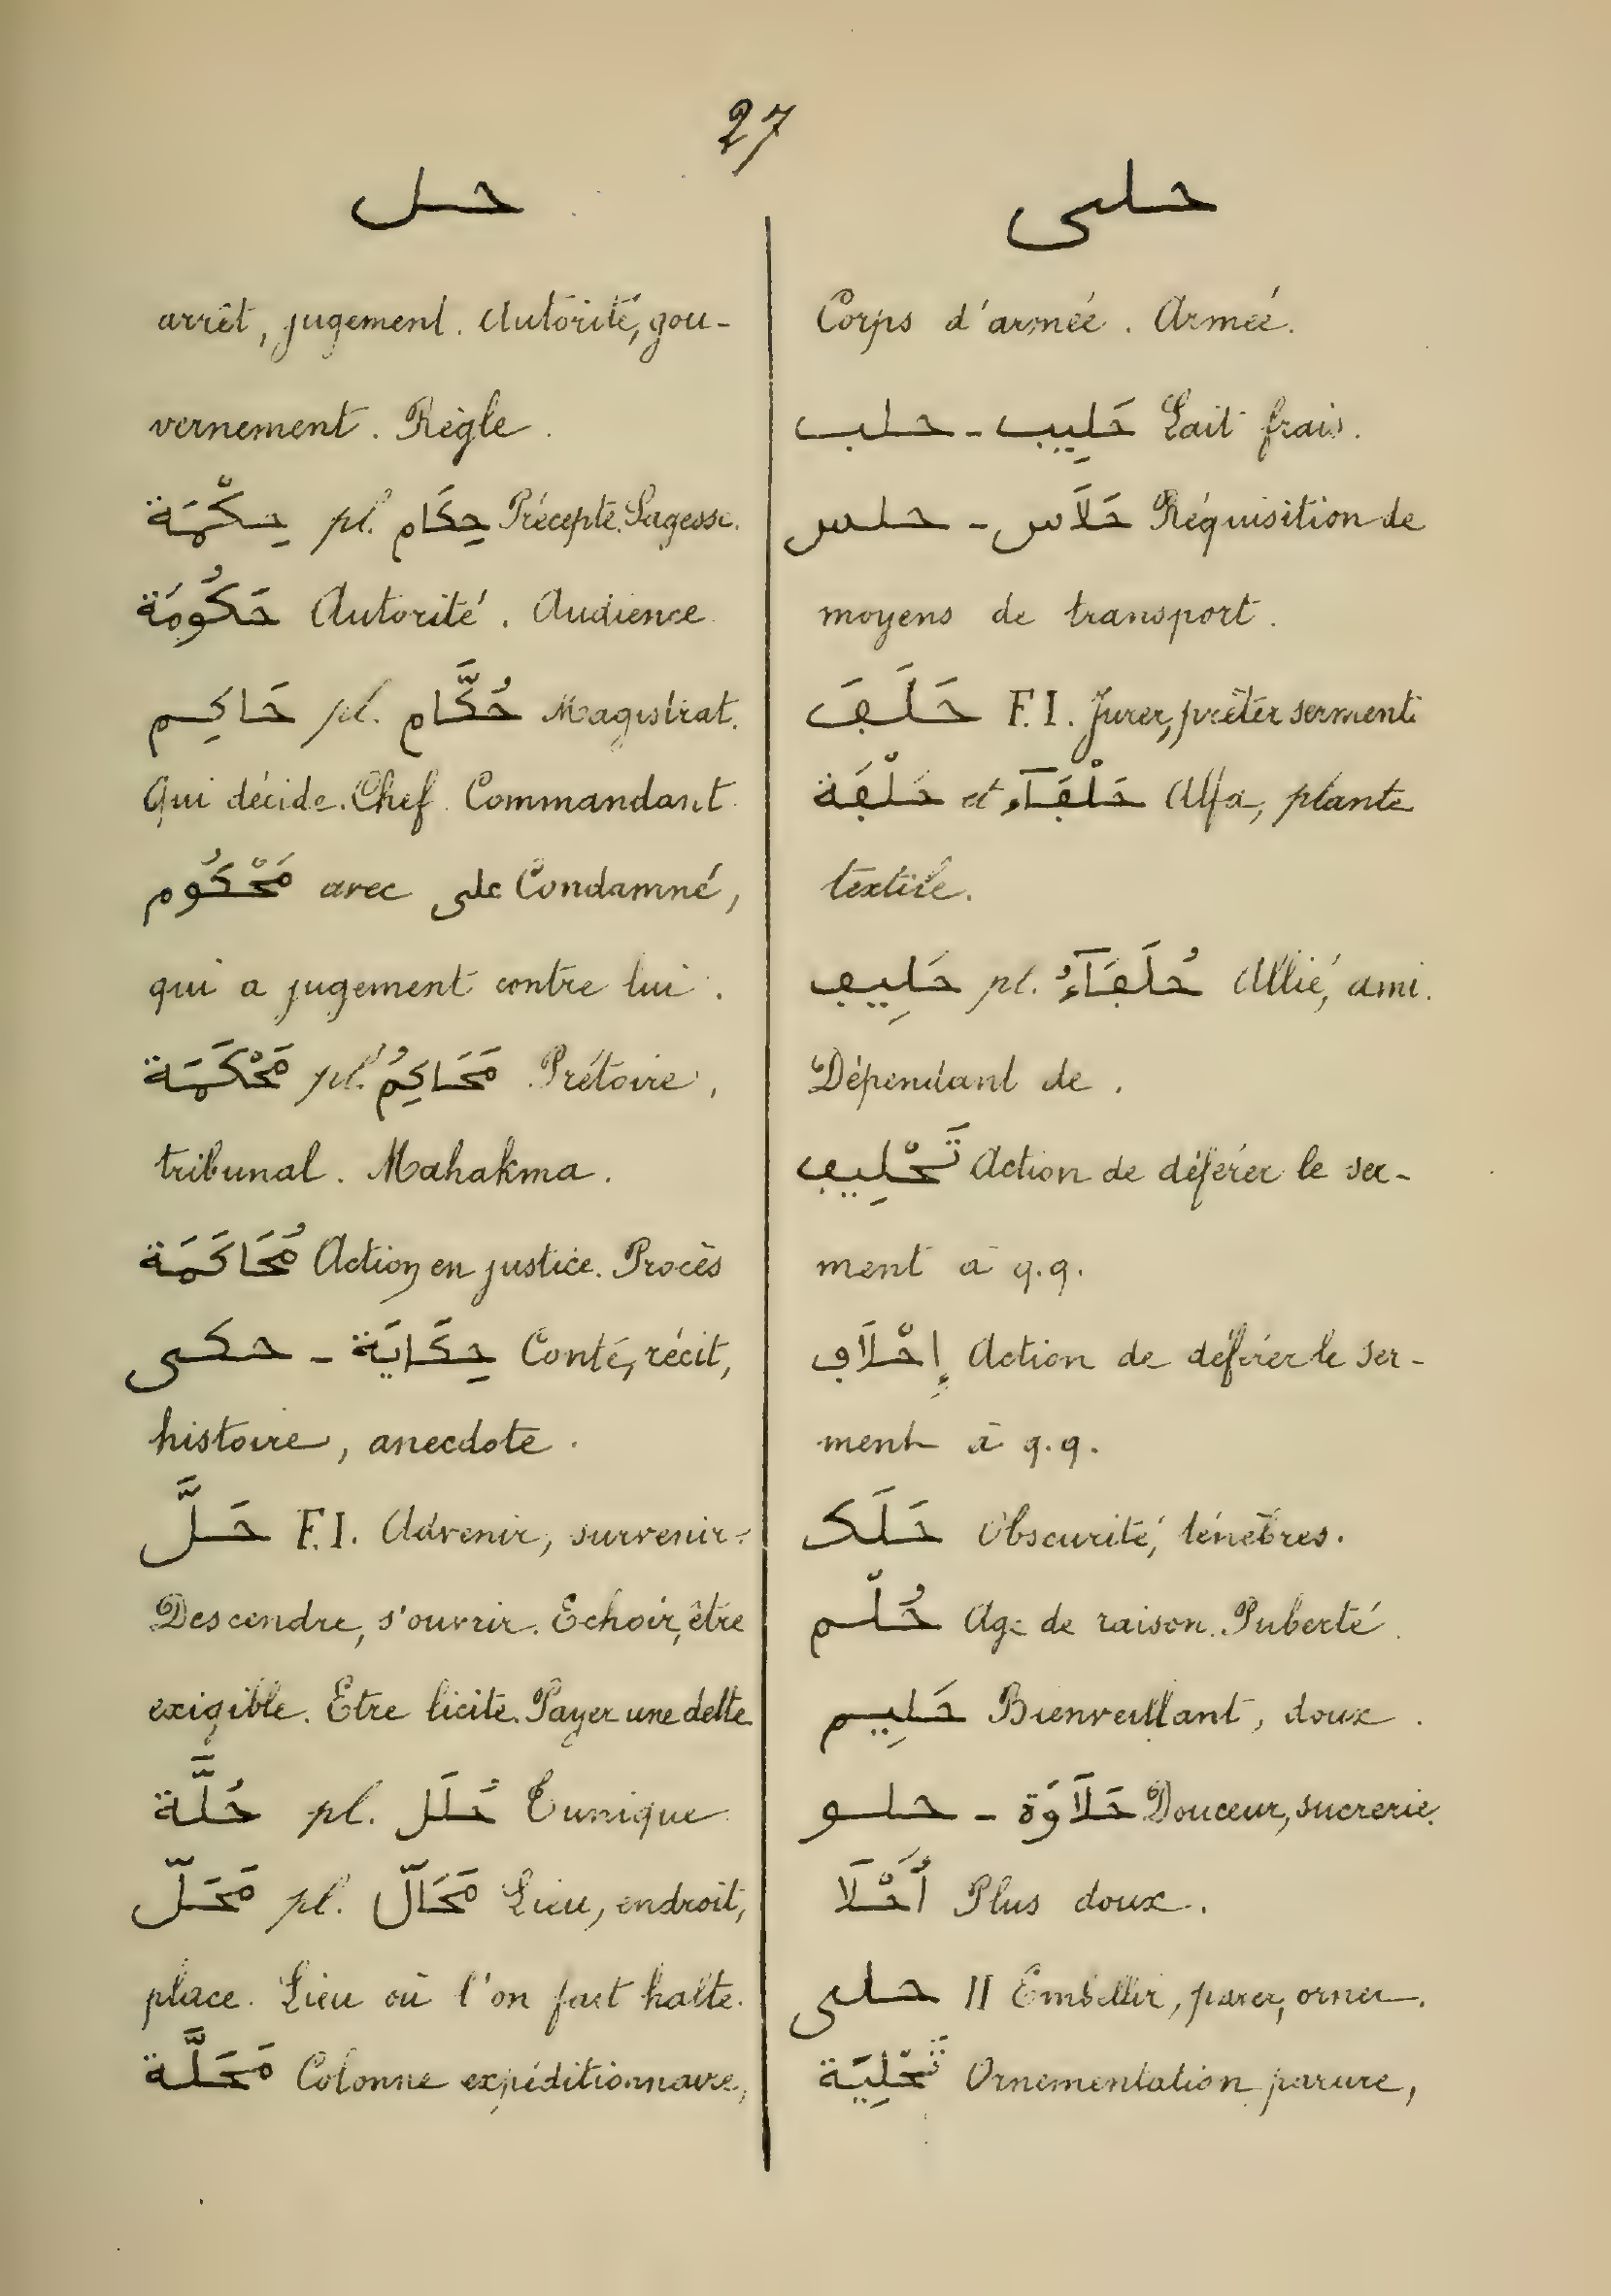 27
حل
arrêt, jugement. Autorité, gou-
vernement. Règle.
حِكْمَة pl. حِكَام Précepte. Sagesse.
حَكُومَة Autorité. Audience
حَاكِم pl. حُكَّام Magistrat.
Qui décide. Chef. Commandant.
مَحْكُوم avec على Condamné,
qui a jugement contre lui.
مَحْكَمَة pl. مَحَاكِمُ Prétoire,
tribunal. Mahakma.
مُحَاكَمَة Action en justice. Procès
حكى - حِكَايَة Conte, récit,
histoire, anecdote.
حَلَّ F.I. Advenir, survenir.
Descendre, s'ouvrir. Echoir, être
exigible. Etre licite. Payer une dette.
حُلَّة pl. حُلَل Tunique.
مَحَلّ pl. مَحَالّ Lieu, endroit,
place. Lieu où l'on fait halte.
مَحَلَّة Colonne expéditionnaire,
حلى
Corps d'armée. Armée.
حلب - حَلِيب Lait frais.
حلس - حَلَاس Réquisition de
moyens de transport.
حَلَڢَ F.I. Jurer, prêter serment.
حَلْڢَة et حَلْڢَآء Alfa, plante
textile.
حَلِيڢ pl. حُلَڢَآءُ Allié, ami.
Dépendant de.
تَحْلِيڢ Action de déférer le ser-
ment à q.q.
إِحْلَاڢ Action de déférer le ser-
ment à q.q.
حَلَك Obscurité, ténèbres.
حُلْم Age de raison. Puberté.
حَلِيم Bienveillant, doux.
حلو - حَلَاوَة Douceur, sucrerie.
أَحْلَا Plus doux.
حلى II Embellir, parer, orner.
تَحْلِيَة Ornementation, parure,